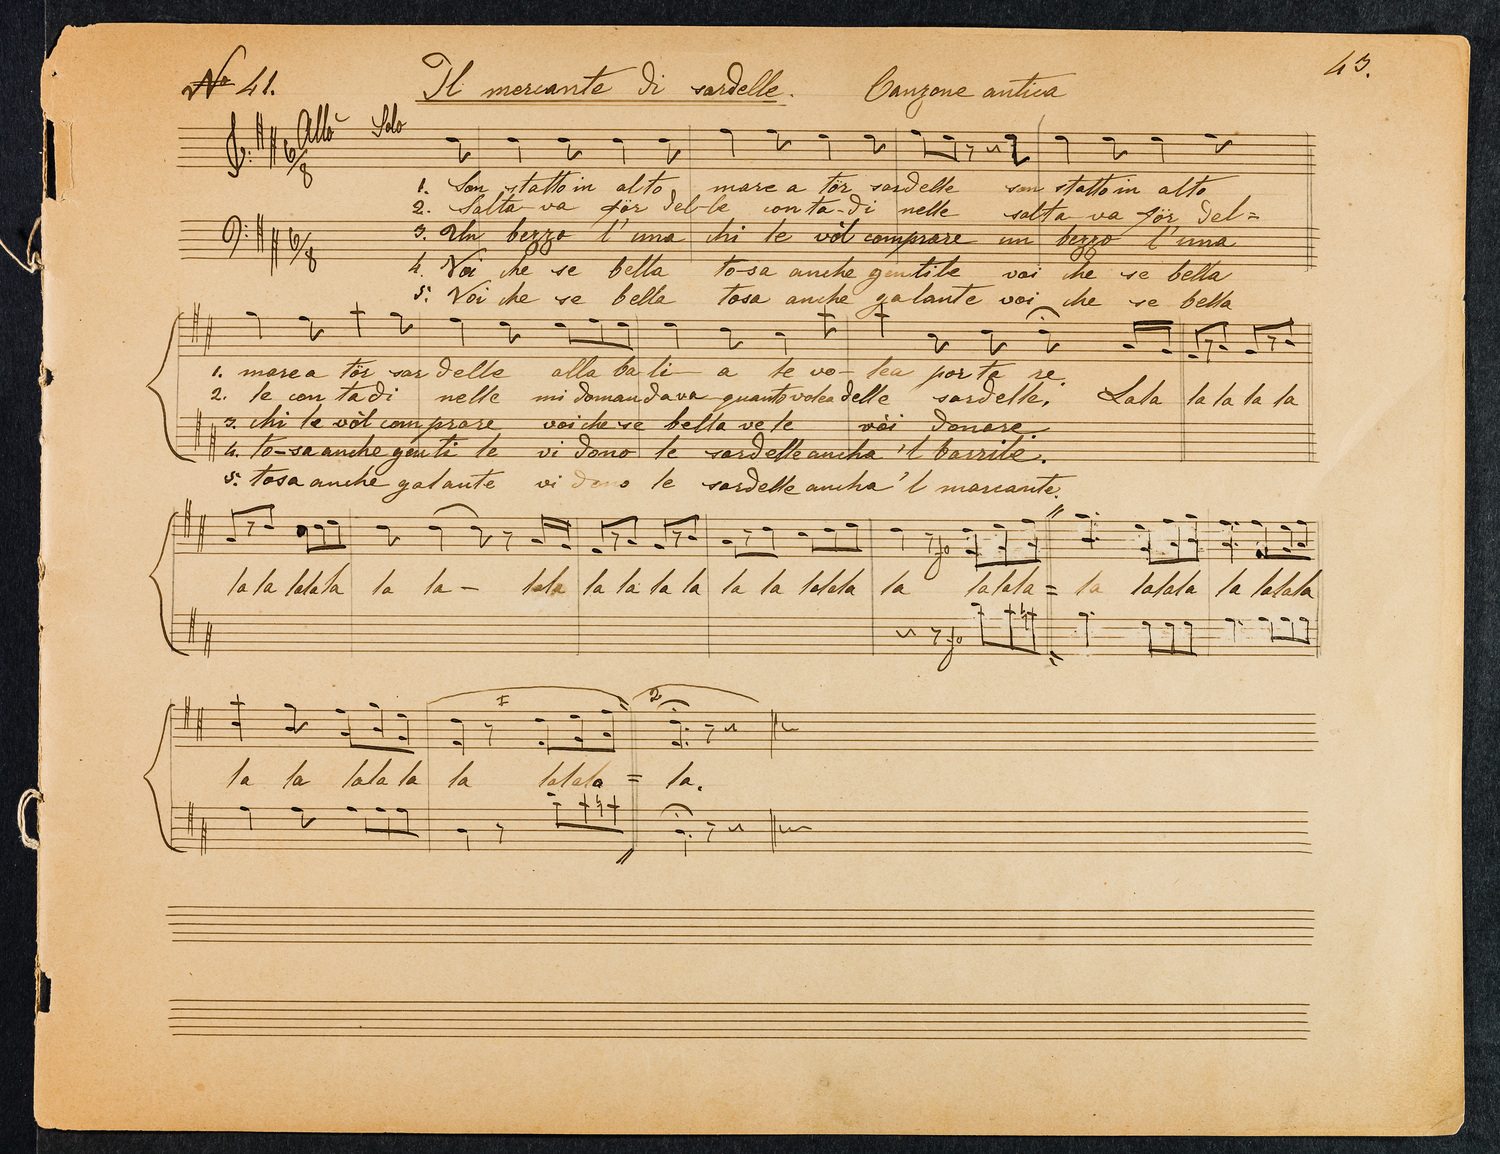 No 41. Il mercante di sardelle. Canzone antica 43.
Allo Solo
6/8
1. Son statto in alto mare a tör sardelle son statto in alto
2. Salta va för del-le conta-di nelle salta va för del=
6/8
3. Un bezzo l'una chi le völ comprare un bezzo l'una
4. Voi che se bella to-sa anche gentile voi che se bella
5. Voi che se bella tosa anche galante voi che se bella
1. mare a tör sardelle alla ba li- a le vo- lea porta re.
2. le contadi nelle mi domandava quanto volea delle sardelle. Lala la la la la
3. chi le völ comprare voi che se bella ve le vöi donare
4. to-sa anche genti le vi dono le sardelle ancha 'l barrile.
5. tosa anche galante vi dono le sardelle ancha 'l marcante.
la la lalala la la- lala la la la la la la lalala la lalala = la lalala la lalala
fo
fo
I 2
la la lala la la lalala = la.